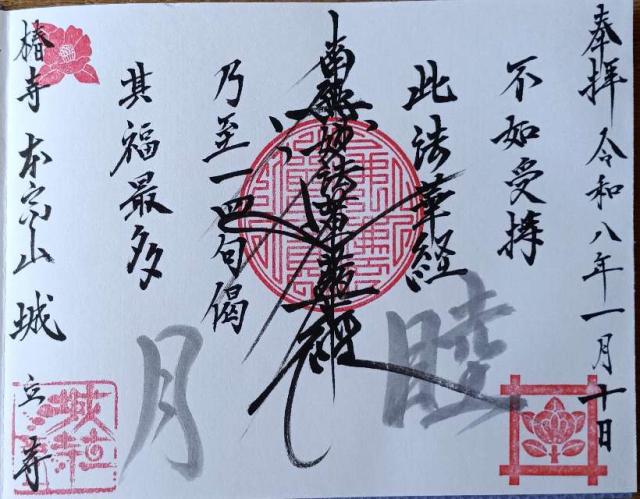 奉拝 令和八年一月十日
不如受持
此法華経
南無妙法蓮華経
乃至一四句偈
其福最多
睦月
椿寺 本宗山 城立寺